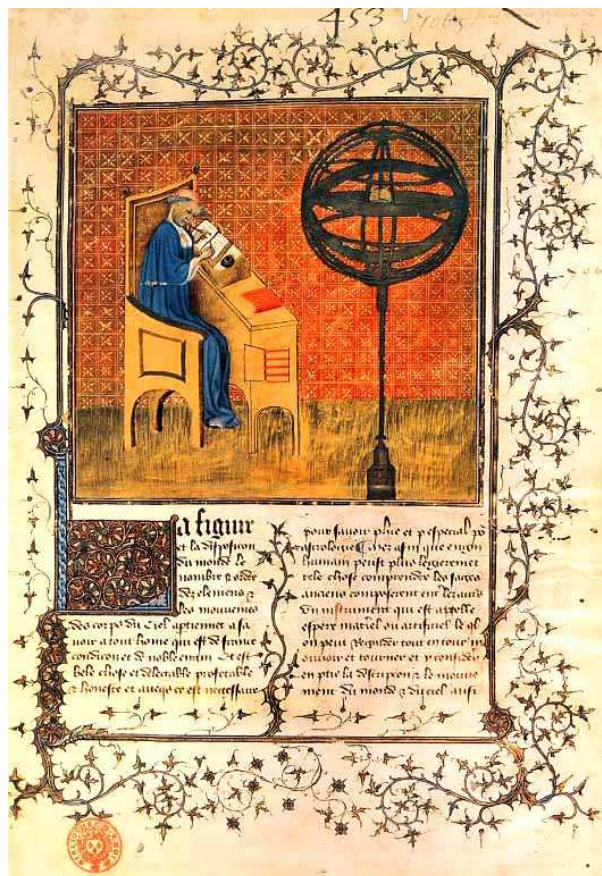 453
La figure
et la disposicion
du monde le
nombre & ordre
des elemens &
les mouvemens
des corps du ciel aptiennent a sa
voir a tout home qui est de franche
condicion et de noble engin Et est
bele chose et delectable profitable
& honeste et avecqs ce est necessaire
pour savoir phie et p especial po
astrologie Mes afin que engin
humain peust plus legierement
tele chose comprendre les sages
anciens composerent
un instrument qui est appelle
espere materiel ou artificiel le ql
on peut regarder tout entour
mouvoir et tourner et y considerer
en ptie la descripcion & le mouve
ment du monde & du ciel ausi